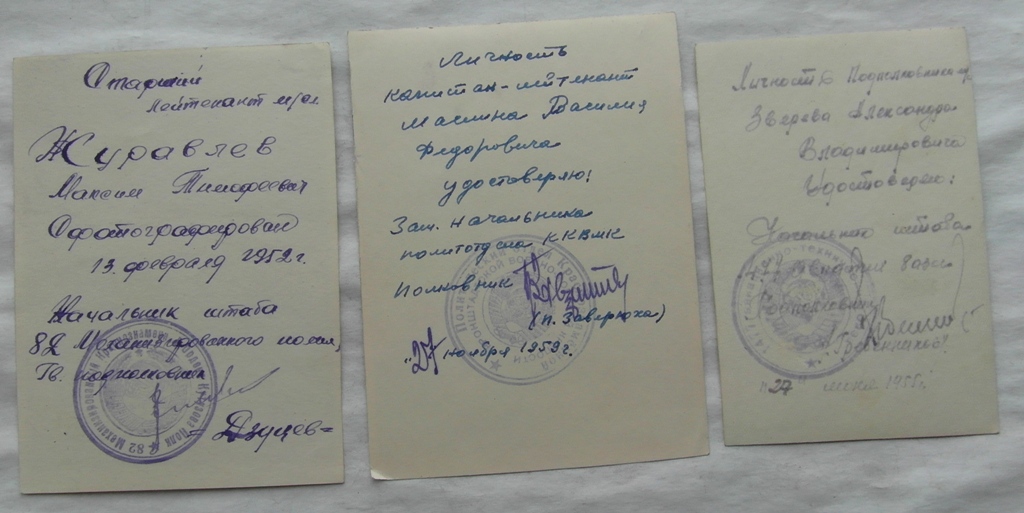 Старший
лейтенант
Журавлев
Максим Тимофеевич
Сфотографирован
13 февраля 1952 г.
Начальник штаба
82 Механизированного полка,
Гв. подполковник
= Дзуцев =
82 Механизированный Краснознаменный Полк
Личность
капитан-лейтенант
Маслина Василия
Федоровича
удостоверяю!
Зам. Начальника
политотдела ККВМК
Полковник
(п. Заверюха)
"27" ноября 1959 г.
Личность Подполковника
Зверева Александра
Владимировича
Удостоверяю:
Начальник штаба
"27" 1955 г.